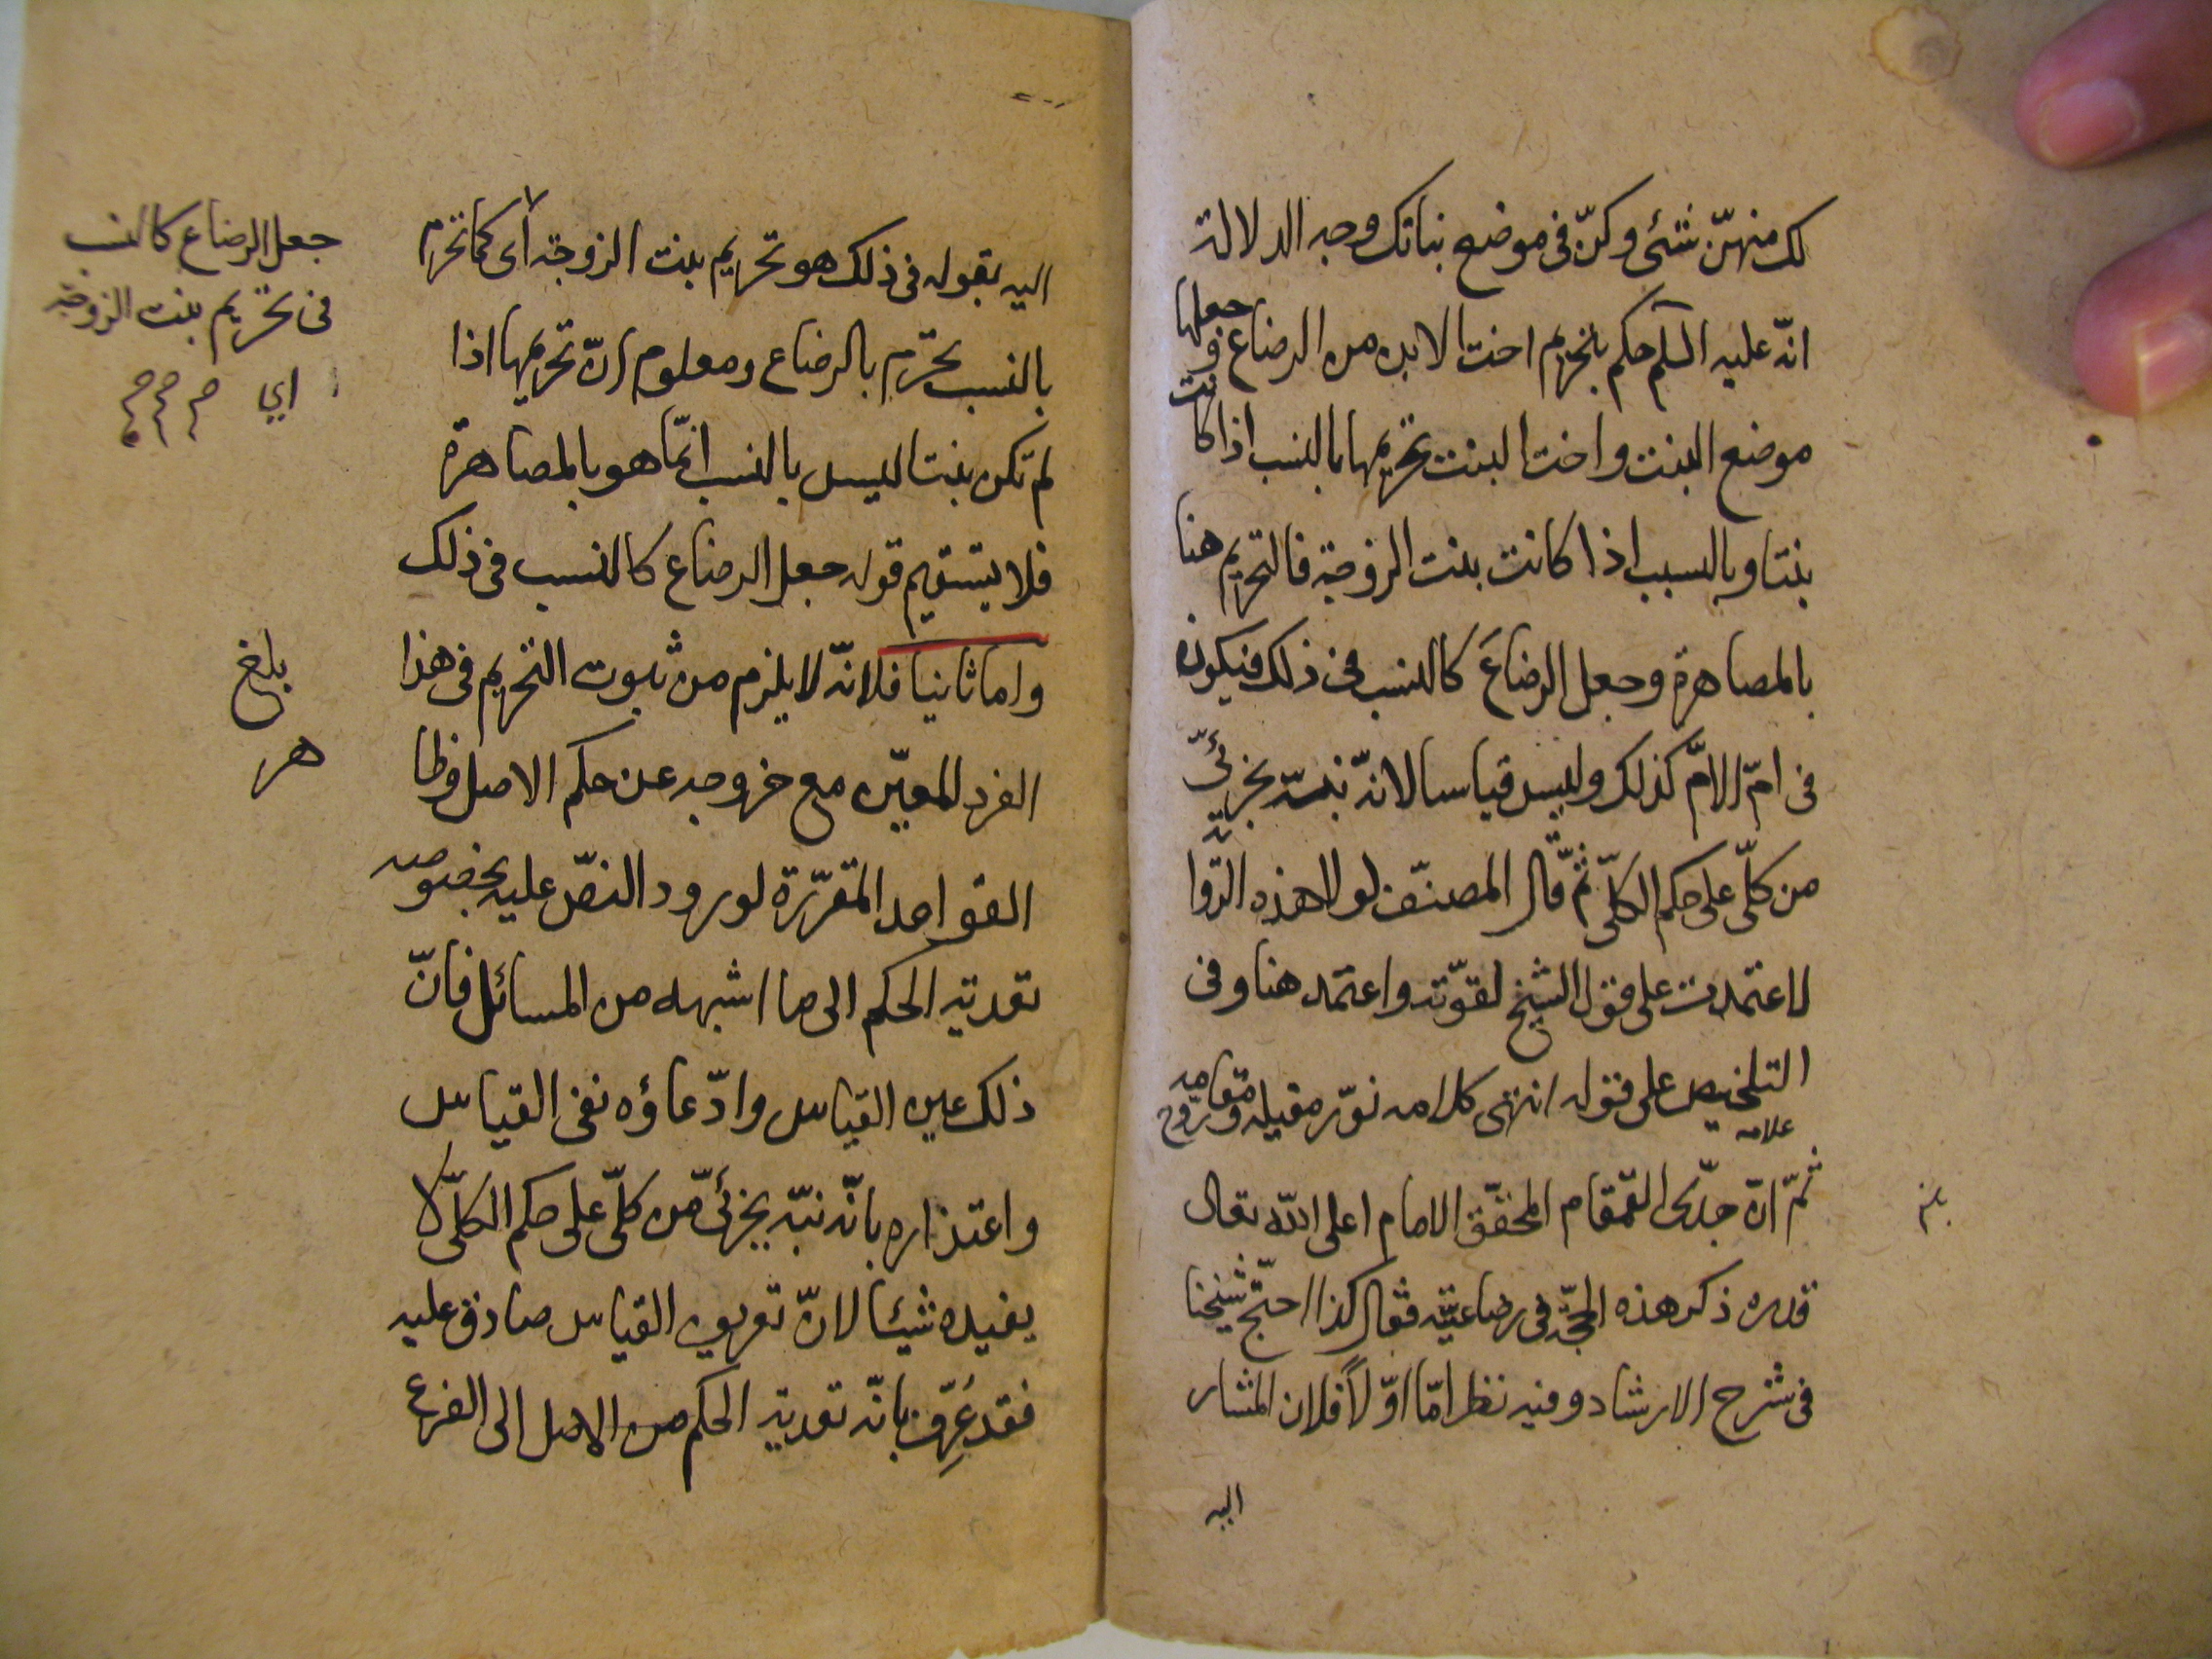 لك منهنّ شئ وكنّ فى موضع بناتك وجه الدلالة
انّه عليه السلم حكم بتحريم اخت الابن من الرضاع وجعلها
موضع البنت واخت البنت تحريمها بالنسب اذا كانت
بنتا وبالسبب اذا كانت بنت الزوجة فالتحريم هنا
بالمصاهرة وجعل الرضاعَ كالنسب فى ذلك فيكون
فى امّ الامّ كذلك وليس قياسا لانّه نبّه بجزئىّ
من كلّى على حكم الكلّى ثمّ قال المصنّف لولا هذه الرّواية
لاعتمدت على قول الشيخ لقوّته واعتمد هنا وفى
التلخيص على قوله انتهى كلامه نوّر مقيله ومقامه وروّح
علامه
ثمّ انّ جدّى القمقام المحقّق الامام اعلى اللّه تعالى
قدره ذكر هذه الحجّة فى رضاعيّته فقال كذا احتجّ شيخنا
فى شرح الارشاد وفيه نظر امّا اوّلاً فلان المشار
اليه
اليه بقوله فى ذلك هو تحريم بنت الزوجة أى كما تحرم
بالنسب تحرّم بالرضاع ومعلوم انّ تحريمها اذا
لم تكن بنتا ليس بالنسب انّما هو بالمصاهرة
فلا يستقيم قوله جعل الرضاع كالنسب فى ذلك
واما ثانيا فلانّه لا يلزم من ثبوت التحريم فى هذا
الفرد المعيّن مع خروجه عن حكم الاصل وظا
القواعد المقرّرة لورود النصّ عليه بخصوصه
تعدية الحكم الى ما اشبهه من المسائل فانّ
ذلك عين القياس وادّعاؤه نفى القياس
واعتذاره بانّه نبّه بجزئىّ من كلّى على حكم الكلّى لا
يفيده شيئا لانّ تعريف القياس صادق عليه
فقد عُرِّف بانّه تعدية الحكم من الاصل الى الفرع
جعل الرضاع كالنسب
فى تحريم بنت الزوجة
اي
بلغ
هر